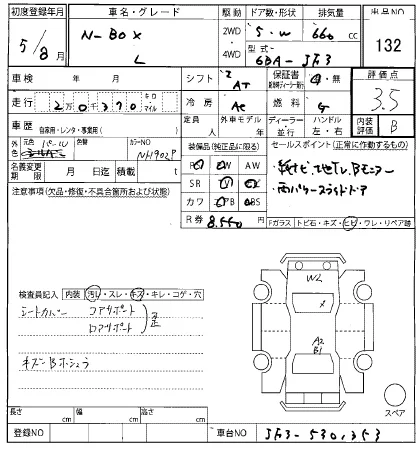 初度登録年月 車名・グレード 駆動 ドア数・形状 排気量 出品NO
5/8月 N-BOX L 2WD・4WD 5・W 660 cc 132
型式 6BA-JF3
車検 年 月 シフト AT 保証書 有・無 評価点 3.5
走行 20370 キロ マイル 冷房 AC 燃料 G
定員 人 外車モデル 年 ハンドル 左・右 内装評価 B
ディーラー 並行
車歴 自家用・レンタ・事業用( )
外色 元色 パール 色替 カラーNO NH902P
装備品(純正品に限る) セールスポイント(正常に作動するもの)
名義変更期限 月 日迄 積載 t
AW SR カワ
純ナビ、地TV、Bモニター
両パワースライドドア
R券 8,550
注意事項(欠品・修復・不具合箇所および状態)
Fガラス トビ石・キズ・ヒビ・ワレ・リペア跡
検査員記入 内装 汚れ・スレ・キズ・キレ・コゲ・穴
シートカバー
キズ
W2
X
A2
B1
スペア
長さ cm 幅 cm 高さ cm
登録NO 車台NO JF3-5301353